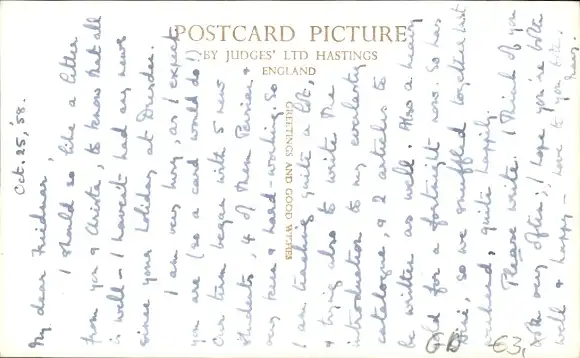 POSTCARD PICTURE
BY JUDGES' LTD HASTINGS
ENGLAND
GREETINGS AND GOOD WISHES
Oct. 25, '58.
My dear Friedmar,
I should so like a letter
from you & Christa, to know that all
is well – I haven't had any news
since your holiday at Dresden.
I am very busy, as I expect
you are (so a card would do!)
Our term began with 5 new
students, 4 of them Persian &
very keen & hard-working. So
I am teaching quite a lot,
& trying also to write the
introduction to my everlasting
catalogue, & 2 articles to
be written as well. Also a heavy
cold for a fortnight now. So has
, so we snuffled together last
weekend, quite happily.
Please write. I think of you
both very often; I hope you're both
well & happy – love to you both,